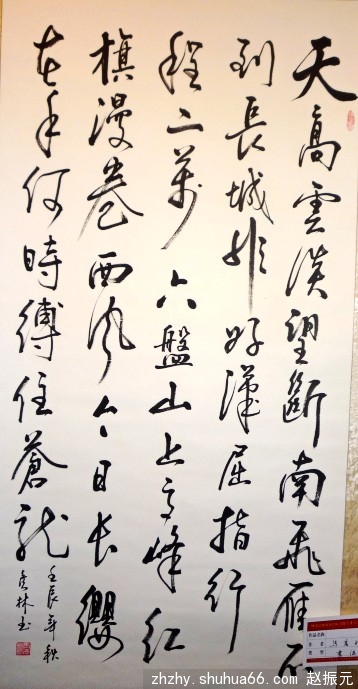 天高雲淡望斷南飛雁不
到長城非好漢屈指行
程二萬六盤山上高峰紅
旗漫卷西风今日长纓
在手何時縛住蒼龙
壬辰年秋
林书
zhzhy.shuhua66.com 赵振元